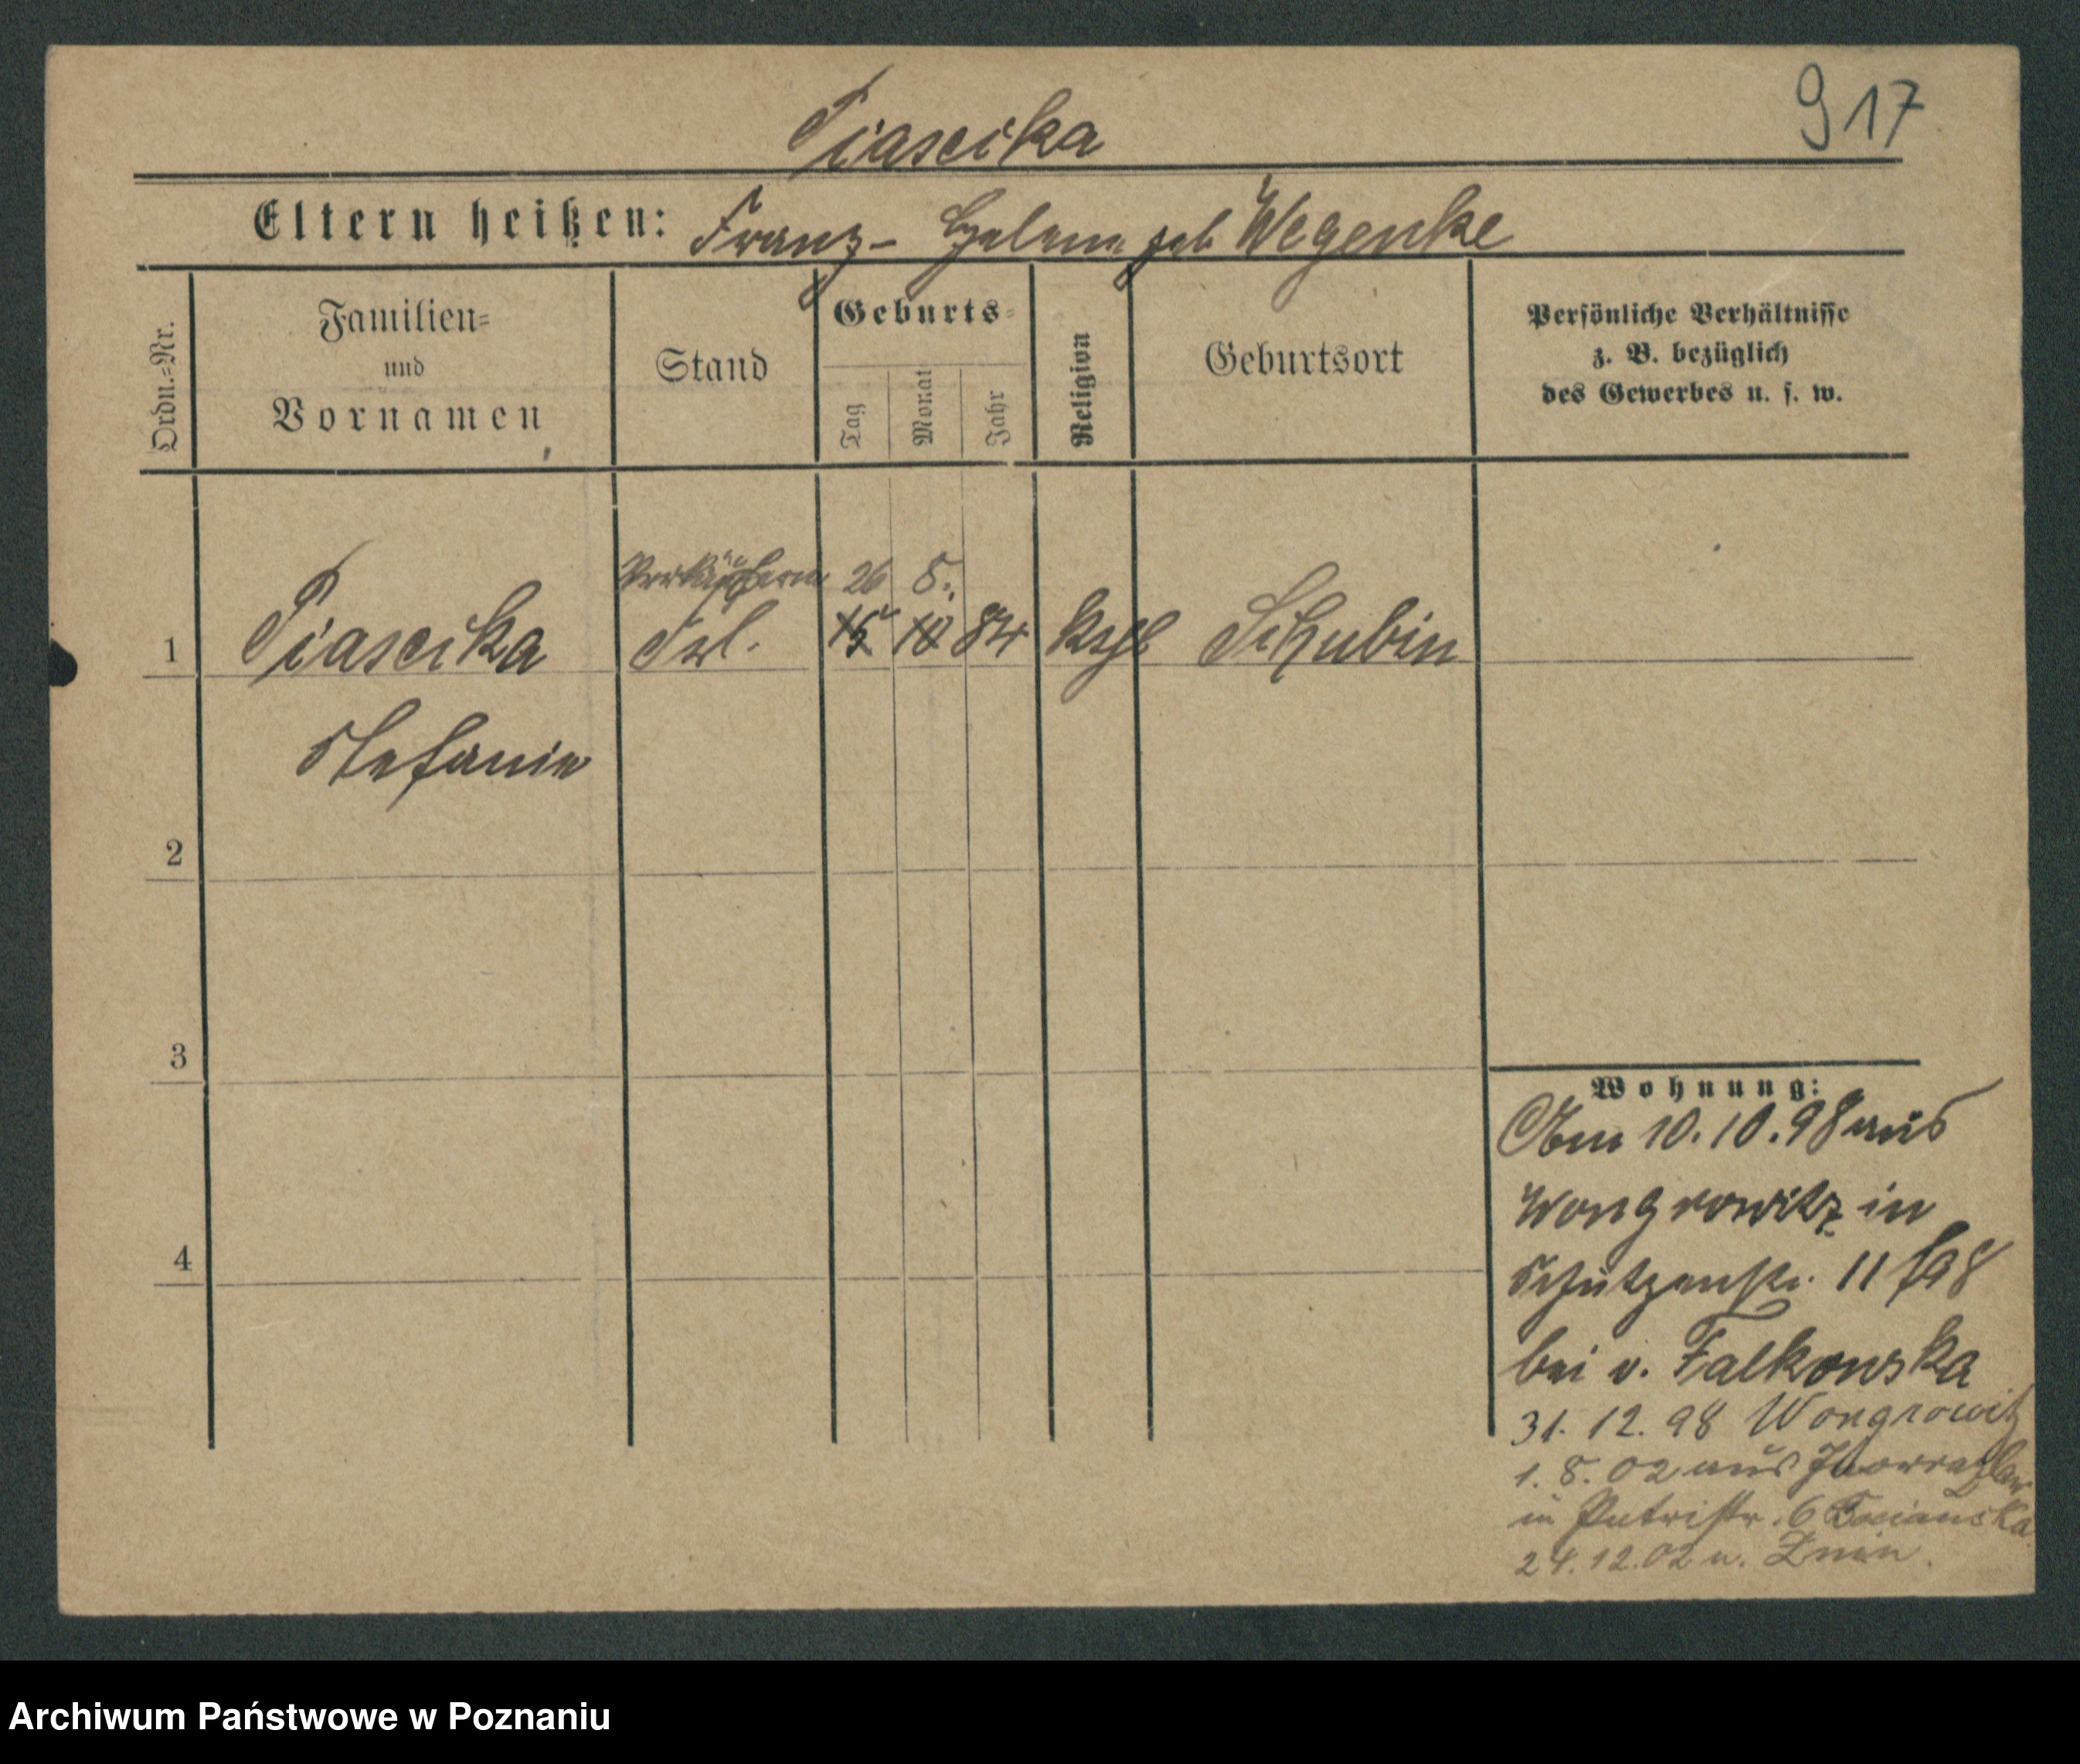 917
Piascika
Eltern heißen: Franz - Helene geb Wegenke
Ordn.-Nr. Familien- und Vornamen Stand Geburts- Tag Monat Jahr Religion Geburtsort Persönliche Verhältnisse z. B. bezüglich des Gewerbes u. s. w.
Verkäuferin 26 5.
1 Piascika Frl. 15 10 84 kath Schubin
Stefanie
2
3
4
Wohnung:
Am 10.10.98 aus
Wongrowitz in
Schützenstr. 11 /98
bei v. Falkowska
31. 12. 98 Wongrowitz
1. 8. 02 aus Inowrazlaw
in Petristr. 6
24. 12. 02 n. Znin.
Archiwum Państwowe w Poznaniu